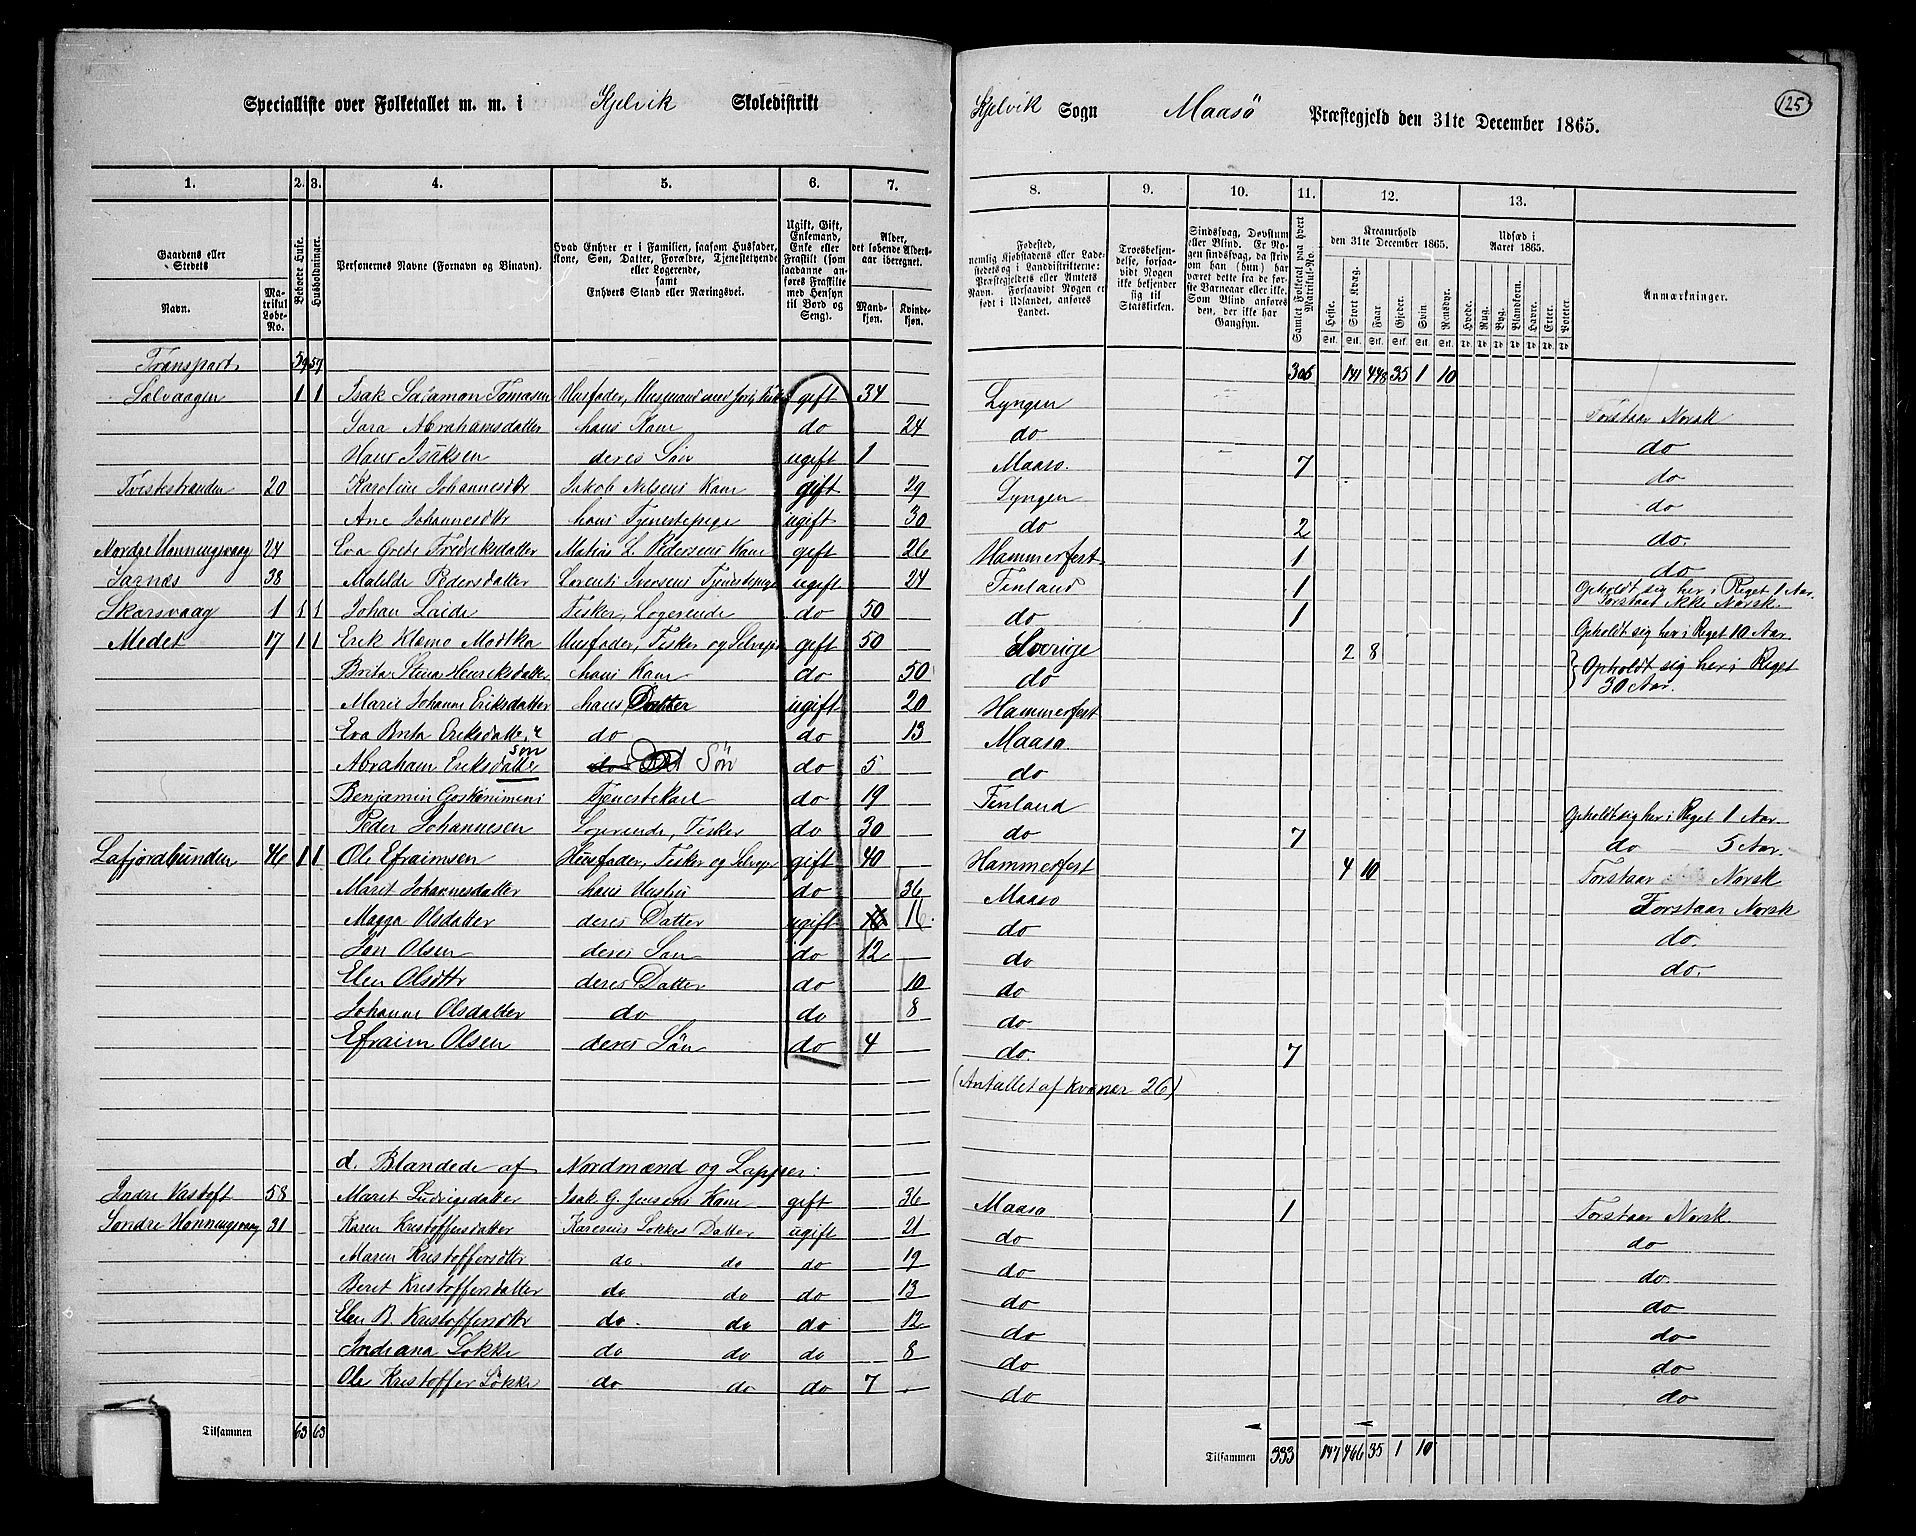 Specialliste over Folketallet m. m. i Kjelvik Skoledistrikt
Kjelvik Sogn Maasö Præstegjeld den 31te December 1865.
125
1. 2. 3. 4. 5. 6. 7. 8. 9. 10. 11. 12. 13.
Gaardens eller Stedets
Navn.
Matrikul Løbe-No.
Beboede Huse.
Husholdninger.
Personernes Navne (Fornavn og Binavn).
Hvad Enhver er i Familien, saasom Husfader, Kone, Søn, Datter, Forældre, Tjenestetyende eller Logerende, samt Enhvers Stand eller Næringsvei.
Ugift, Gift, Enkemand, Enke eller Fraskilt (som saadanne anføres Fraskilte med Hensyn til Bord og Seng).
Alder, det løbende Alders-aar iberegnet.
Mandkjøn.
Kvindekjøn.
Fødested, nemlig Kjøbstadens eller Ladestedets og i Landdistrikterne: Præstegjeldets eller Amtets Navn. Forsaavidt Nogen er født i Udlandet, anføres Landet.
Troesbekjendelse, forsaavidt Nogen ikke bekjender sig til Statskirken.
Sindssvag, Døvstum eller Blind. Er Nogen sindssvag, da skriv om han (hun) har været dette fra de første Barneaar eller ikke. Som Blind anføres den, der ikke har Gangsyn.
Samlet Folketal paa hvert Matrikul-No.
Kreaturhold den 31te December 1865.
Heste. Stort Kvæg. Faar. Gjeder. Svin. Rensdyr.
Udsæd i Aaret 1865.
Hvede. Rug. Byg. Blandkorn. Havre. Erter. Poteter.
Anmærkninger.
Transport 59 59 305 141 448 35 1 10
Sølvaagen 1 1 Isak Salamon Tomasen Husfader, Husmand med Jord, gift 34 Lyngen Forstaar Norsk
Sara Abrahamsdatter hans Kone do 24 do do
Hans Isaksen deres Søn ugift 1 Maasö. 7 do
20 Karoline Johannesdtr Jakob Nilsens Kone gift 29 Lyngen do
Ane Johannesdtr hans Tjenestepige ugift 30 do 2 do.
Nordre Honningsvaag 24 Eva Grete Fredriksdatter Matias L. Pedersens Kone gift 26 Hammerfest 1 do
Sarnæs 38 Matilde Pedersdatter Lorents Iversens Tjenestepige ugift 24 Finland 1 Opholdt sig her i Riget 1 Aar. Forstaar ikke Norsk.
Skarsvaag 1 1 1 Johan Laide Fisker, Logerende do 50 do 1 Opholdt sig her i Riget 10 Aar
Medet 17 1 1 Erik Klemo Modtka Husfader, Fisker og Selveier gift 50 Sverige 2 8 Opholdt sig her i Riget
Brita Stina Henriksdatter hans Kone do 50 do 30 Aar.
Marie Johanne Eriksdatter hans Datter ugift 20 Hammerfest
Eva Brita Eriksdatter do do 13 Maasö.
Abraham Eriksdatter søn do Søn do 5 do
Benjamin Tjenestekarl do 19 Finland Opholdt sig her i Riget 1 Aar
Peder Johannesen Logerende, Fisker do 30 do 7 do 5 Aar.
Lafjordbunden 46 1 1 Ole Efraimsen Husfader, Fisker og Selveier gift 40 Hammerfest 4 10 Forstaar Norsk
Maret Johannesdatter hans Hustru do 36 Maasö Forstaar Norsk
Magga Olsdatter deres Datter ugift 16 16. do do.
Jon Olsen deres Søn do 12 do do.
Elen Olsdtr deres Datter do 10 do
Johanne Olsdatter do do 8 do
Efraim Olsen deres Søn do 4 do. 7
(Antallet af Kvæner 26)
d. Blandede af Nordmænd og Lapper.
Indre 58 Maret Ludvigsdatter Isak G. Jensens Kone gift 36 Maasö 1 Forstaar Norsk.
Søndre Honningsvaag 31 Karen Kristoffersdatter Løkkes Datter ugift 21 do do
Maren Kristoffersdtr do. do do 19 do do.
Beret Kristoffersdatter do do do 13 do do
Elen B. Kristoffersdtr do. do do 12 do do
Indiana Løkke do do do 8 do do
Ole Kristoffer Løkke do do do 7 do do
Tilsammen 63 63 Tilsammen 333 147 466 35 1 10